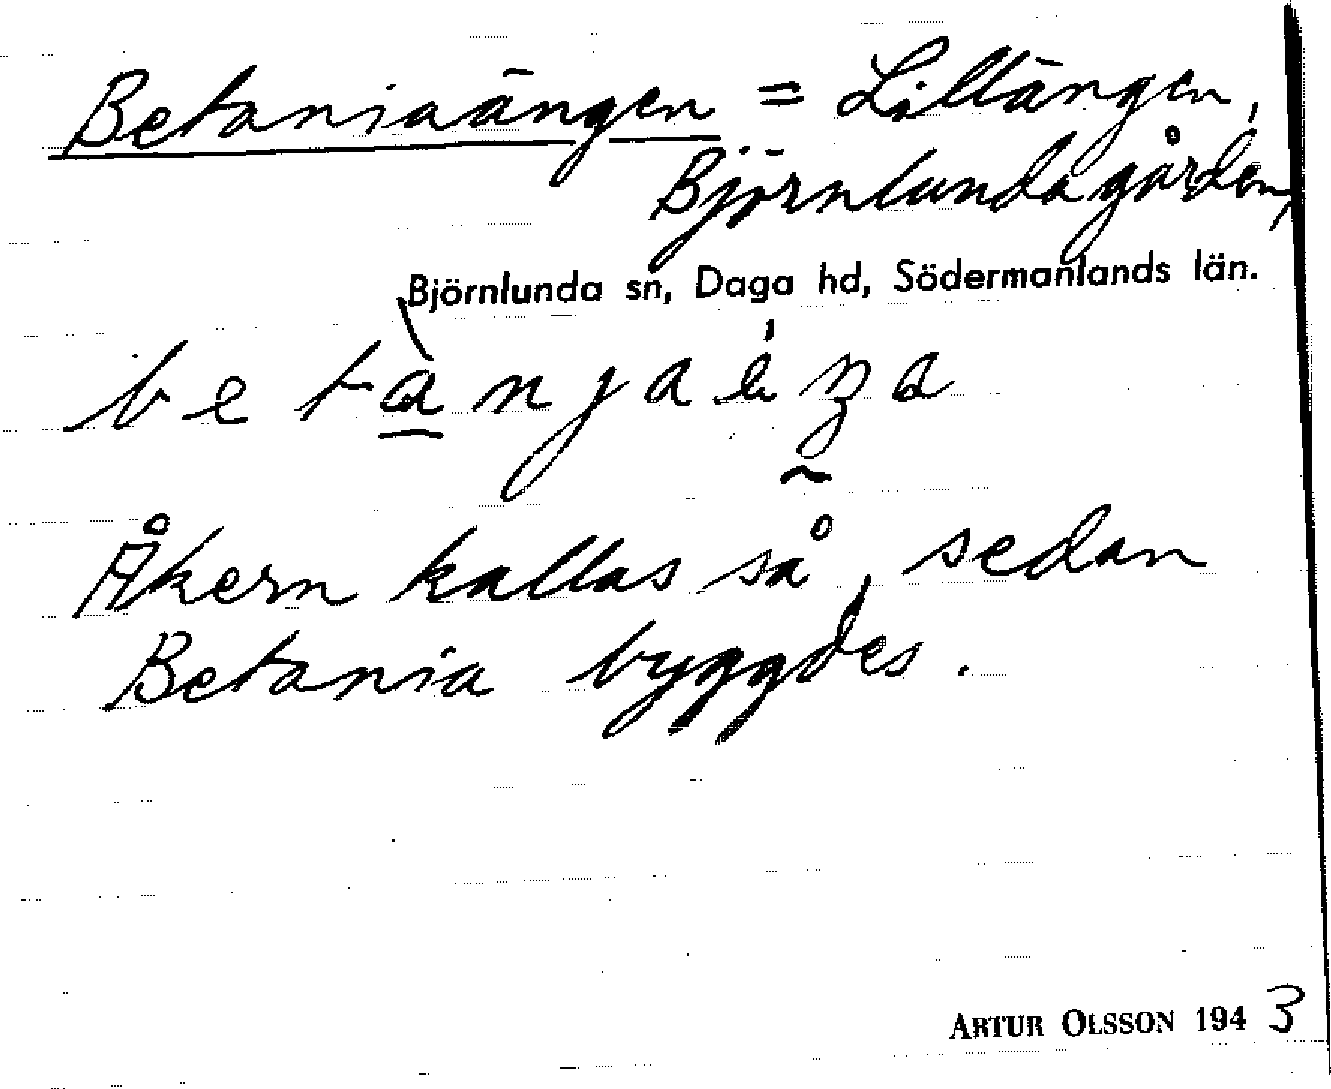 Betaniaängen = Lillängen,
Björnlundagården,
Björnlunda sn, Daga hd, Södermanlands län.
Åkern kallas så, sedan
Betania byggdes.
ARTUR OLSSON 1943